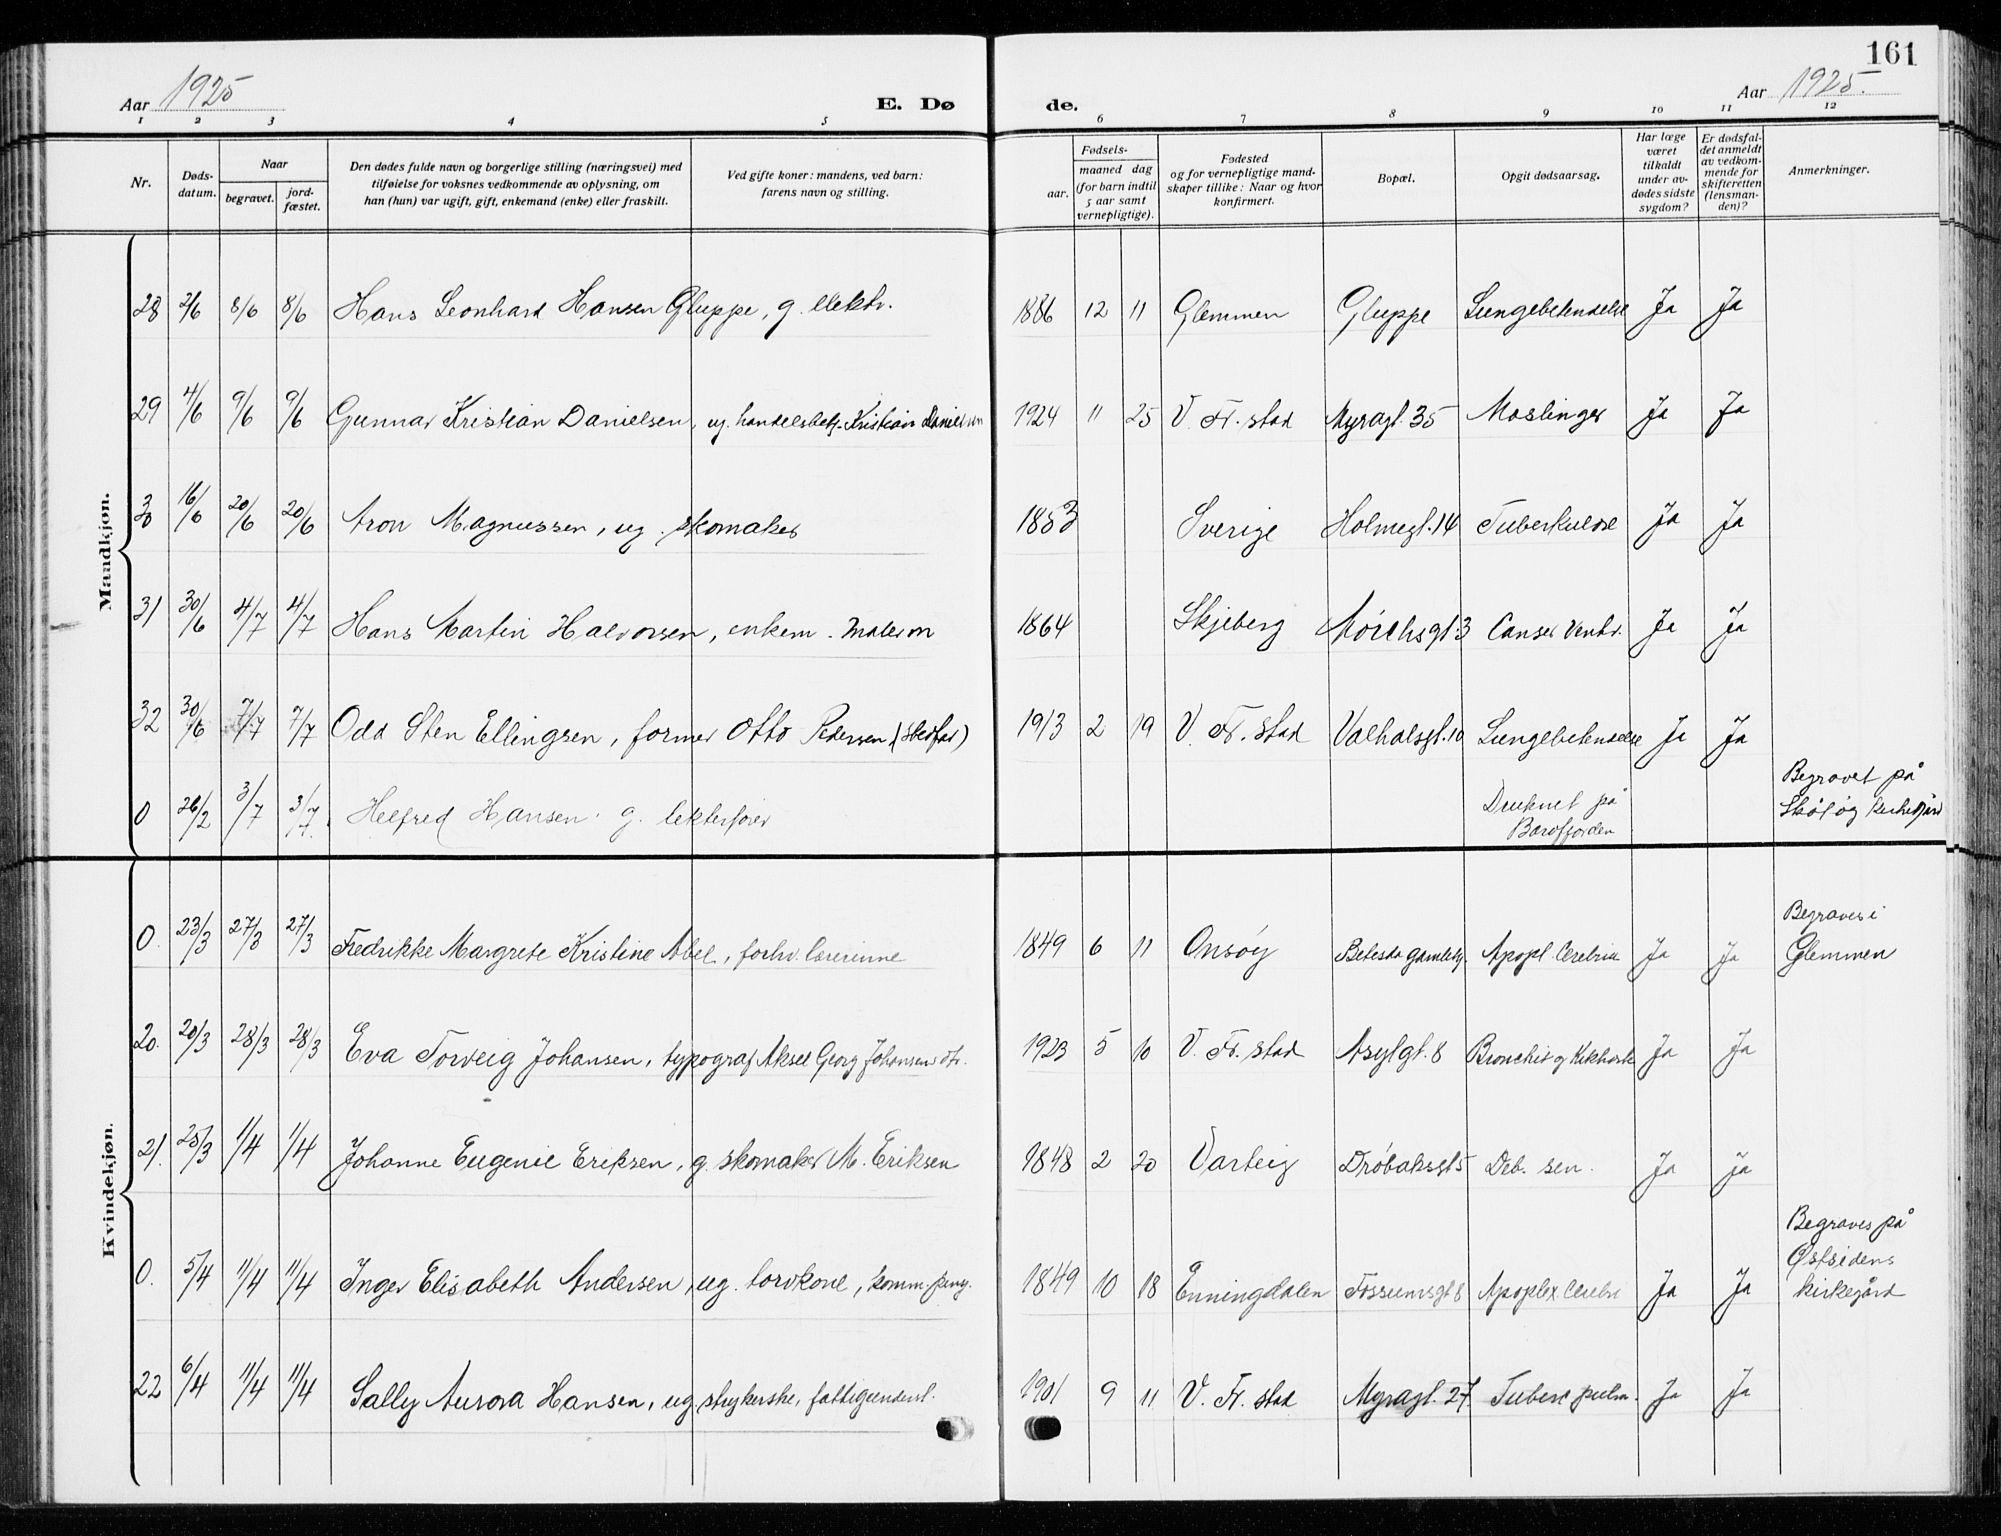 161
Aar 1925 E. Døde. Aar 1925.
1 2 3 4 5 6 7 8 9 10 11 12
Nr. | Døds-datum. | Naar begravet. | jord-fæstet. | Den dødes fulde navn og borgerlige stilling (næringsvei) med tilføielse for voksnes vedkommende av oplysning, om han (hun) var ugift, gift, enkemand (enke) eller fraskilt. | Ved gifte koner: mandens, ved barn: farens navn og stilling. | Fødsels- aar. | maaned dag (for barn indtil 5 aar samt vernepligtige). | Fødested og for vernepligtige mandskaper tillike: Naar og hvor konfirmert. | Bopæl. | Opgit dødsaarsag. | Har læge været tilkaldt under avdødes sidste sygdom? | Er dødsfaldet anmeldt av vedkommende for skifteretten (lensmanden)? | Anmerkninger.
Mandkjøn.
28 2/6 8/6 8/6 Hans Leonhard Hansen Gluppe, g. elektr. 1886 12 11 Glemmen Gluppe Lungebetendelse Ja Ja
29 4/6 9/6 9/6 Gunnar Kristian Danielsen, ug. handelsbetj. Kristian Danielsen 1924 11 25 V. Fr.stad Myragt. 35 Maslinger Ja Ja
30 16/6 20/6 20/6 Aron Magnussen, ug. skomaker 1853 Sverige Holmegt. 14 Tuberkulose Ja Ja
31 30/6 4/7 4/7 Hans Martin Halvorsen, enkem. Malerm 1864 Skjeberg Mørchsgt. 3 Canser Ventr. Ja Ja
32 30/6 7/7 7/7 Odd Sten Ellingsen, former Otto Pedersen (stedfar) 1913 2 19 V. Fr.stad Valhalsgt. 10 Lungebetendelse Ja Ja
0 26/2 3/7 3/7. Helfred Hansen. g. lekterfører Druknet på Begravet på
kirkegård
Kvindekjøn.
0. 23/3 27/3 27/3 Fredrikke Margrete Kristine Abel, forhv. lærerinne 1849 6 11 Onsøy Betesda gamlehj. Apopl. Cerebri Ja Ja Begraves i
Glemmen
20. 20/3 28/3 28/3 Eva Torveig Johansen, typograf Aksel Georg Johansens dtr. 1923 5 10 V. Fr. stad Asylgt. 8 Bronchit og Kikhoste Ja Ja
21. 25/3 1/4 1/4 Johanne Eugenie Eriksen, g. skomaker M. Eriksen 1848 2 20 Varteig Drøbaksgt 5 Deb. sen. Ja Ja
0. 5/4 11/4 11/4 Inger Elisabeth Andersen, ug. torvkone, komm. peng. 1849 10 18 Enningdalen Fossumsgt 8 Apoplex Cerebri Ja Ja Begraves på
Østsidens
kirkegård
22 6/4 11/4 11/4 Sally Aurora Hansen, ug. strykerske, fattigunderst. 1901 9 11 V. Fr. stad Myragt. 27 Tuberc pulm. Ja Ja